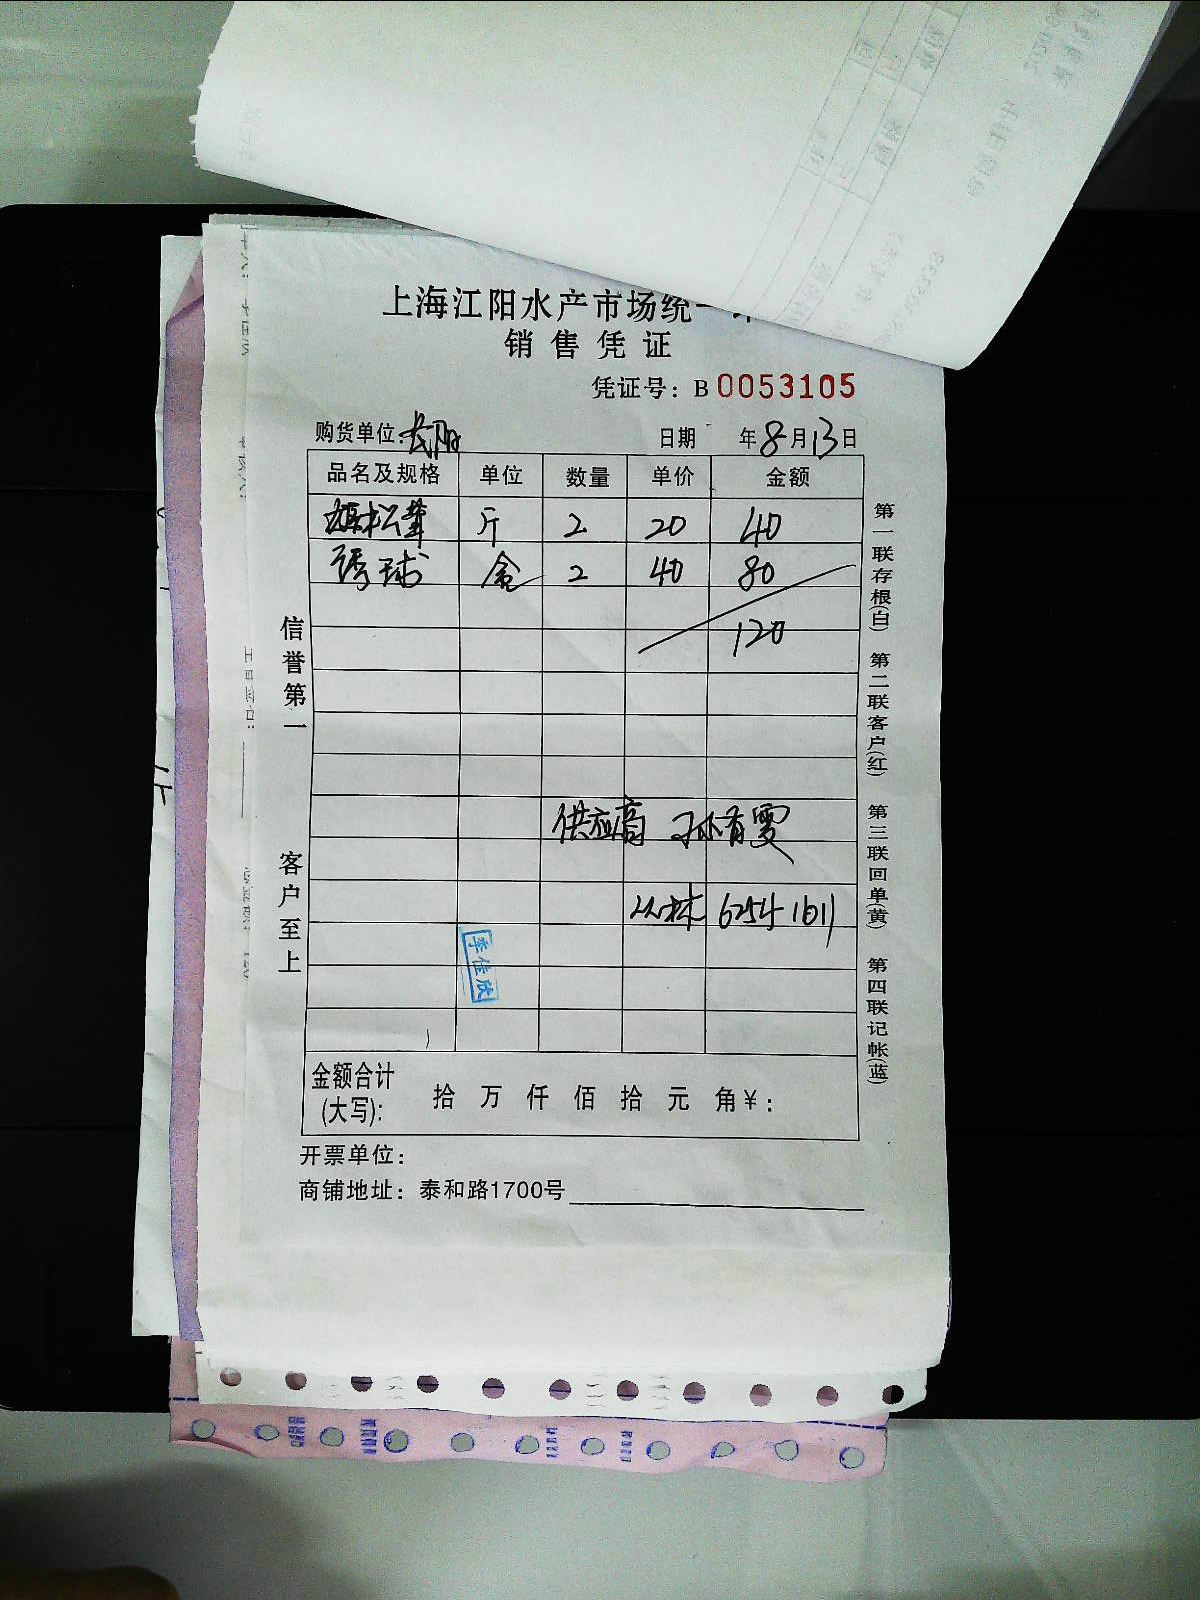 上海江阳水产市场统一
销售凭证
凭证号：B 0053105
购货单位：
日期 年 8 月 13 日
品名及规格 单位 数量 单价 金额
松茸 斤 2 20 40
球 盒 2 40 80
120
供应商 孙有雯
6254 1611
季佳欣
金额合计
(大写)： 拾 万 仟 佰 拾 元 角 ¥：
开票单位：
商铺地址：泰和路1700号
信誉第一 客户至上
第一联存根(白) 第二联客户(红) 第三联回单(黄) 第四联记帐(蓝)